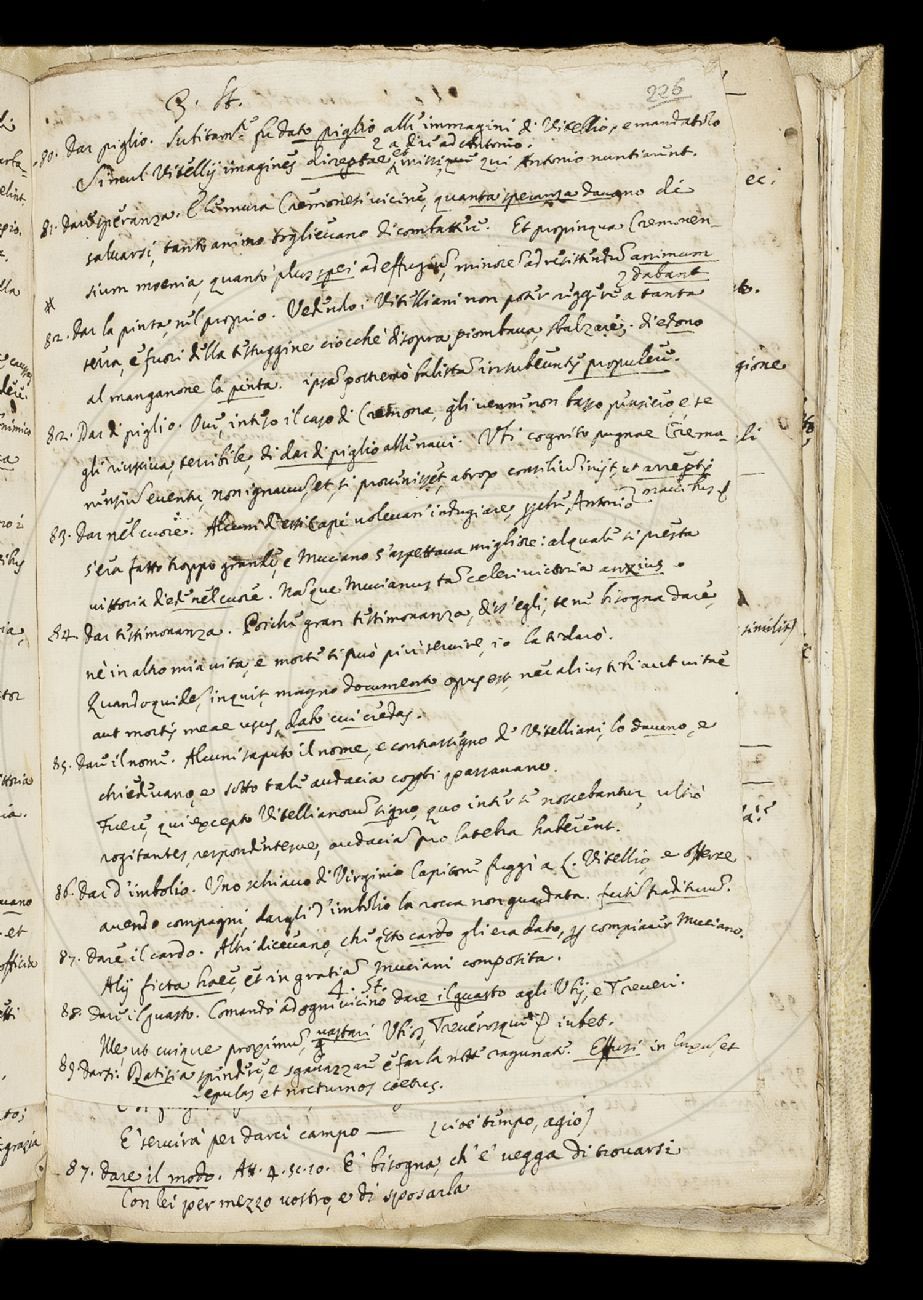 3. St.
226
80. Dar piglio. Subitam.te fu dato piglio all' immagini di Vitellio, e mandatilo
2 a dire ad Antonio.
Simul Vitellij imagines direptae et missi, qui Antonio nuntiarent.
81. Dare speranza. E le mura Cremonesi vicine, quanta speranza davano di
salvarsi, tanto animo toglievano di combattere. Et propinqua Cremonen-
sium moenia, quanto plus spei ad effugium, minorem ad resistendum animum
2 dabant
82. Dar la pinta, nel proprio. Vedendo i Vitelliani non poter reggere a tanta
terra, e fuori della testuggine ciocchè disopra piombava, sbalzare; diedono
al manganone la pinta. ipsam postremò balistam in subeuntes propulere.
82. Dar di piglio. Qui, inteso il caso di Cremona, gli venne non basso pensiero, e se
gli riusciva, terribile, di dar di piglio all. navi. Ubi cognito pugnae Cremo-
nensis eventu, non ignavum, et, si provenisset, atrox consilium inijt, ut arreptis
navibus
83. Dar nel cuore. Alcuni d'essi Capi volevan' indugiare, Antonio
s'era fatto troppo grande, e Muciano s'aspettava migliore: al quale sì presta
vittoria diede nel cuore. Namque Mucianus tam celeri victoria anxius.
84. Dar testimonanza. Poiche gran testimonanza, diss'egli, te ne bisogna dare,
nè in altro mia vita, e morte ti può più servire, io la ti darò.
Quandoquidem, inquit, magno documento opus est, nec alius tibi aut vitae
aut mortis meae usus, dabo cui credas.
85. Dare il nome. Alcuni saputo il nome, e contrassegno de' Vitelliani, lo davano, e
chiedevano, e sotto tale audacia coperti passavano.
Fuere, qui excepto Vitellianorum signo, quo inter se noscebantur, ultrò
rogitantes, respondentesve, audaciam pro latebra haberent.
86. Dar d'imbolio. Uno schiavo di Virginio Capitone fuggì a L. Vitellio, e offerse
avendo compagni, dargli d'imbolio la rocca non guardata. furtim traditurum.
87. Dare il cardo. Altri dicevano, che qsto cardo gli era dato, p compiacer Muciano.
Alij ficta haec, et in gratiam Muciani composita.
4. St.
88. Dare il guasto. Comandò ad ogni vicino dare il guasto agli Ubij, e Treveri.
Ille, ut cuique proximum, vastari Ubios, Treverosque iubet.
89. Darsi. Datisi a spendere, e sguazzare e far la notte ragunate. Effusi in luxum et
epulas et nocturnos coetus.
E' servirà per darci campo — [cioè tempo, agio]
87. Dare il modo. Att. 4. sc. 10. E' bisogna, ch' e' vegga di trovarsi
Con lei per mezzo vostro, e di sposarla